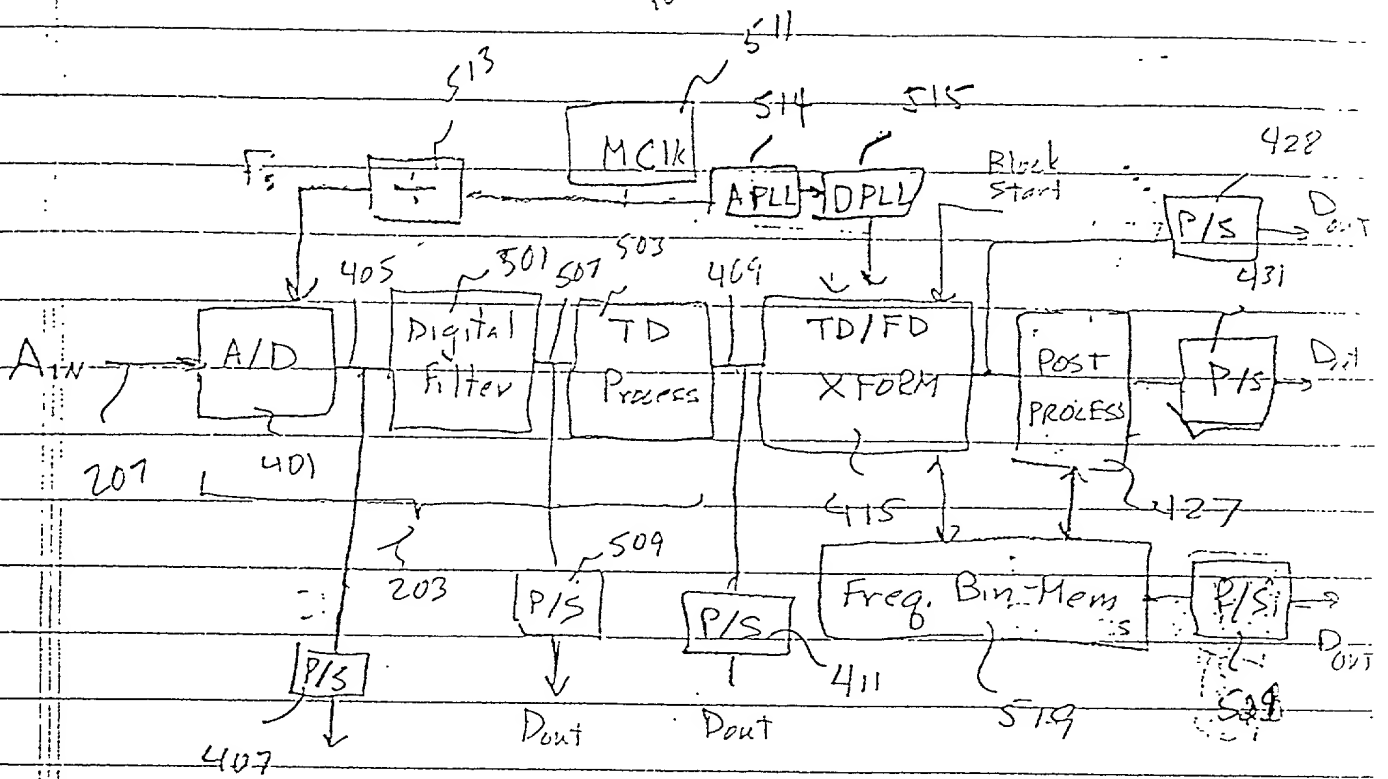 511
513
514
515
428
Fs
÷
MClk
APLL
DPLL
Block
Start
P/S
DOUT
431
405
501
507
503
409
AIN
A/D
Digital
Filter
TD
Process
TD/FD
XFORM
POST
PROCESS
P/S
Dout
207
401
203
415
427
509
P/S
P/S
411
Freq. Bin Mem
519
P/S
DOUT
P/S
407
Dout
Dout